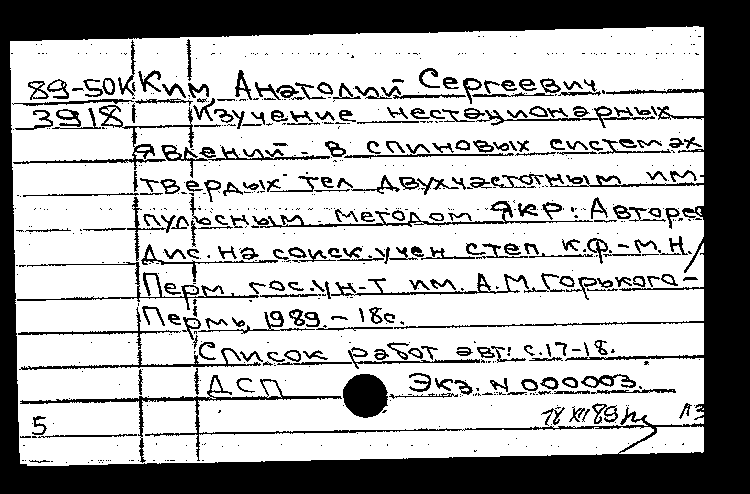 89-50К Ким Анатолий Сергеевич.
3918 Изучение нестационарных
явлений в спиновых системах
твердых тел двухчастотным им-
пульсным методом ЯКР: Авторе
дис. на соиск. учен степ. к.ф.-м.н./
Перм. гос. ун-т им. А.М. Горького-
Пермь, 1989. - 18с.
Список работ авт: с.17-18.
ДСП Экз. N 000003.
5 18 XII 89